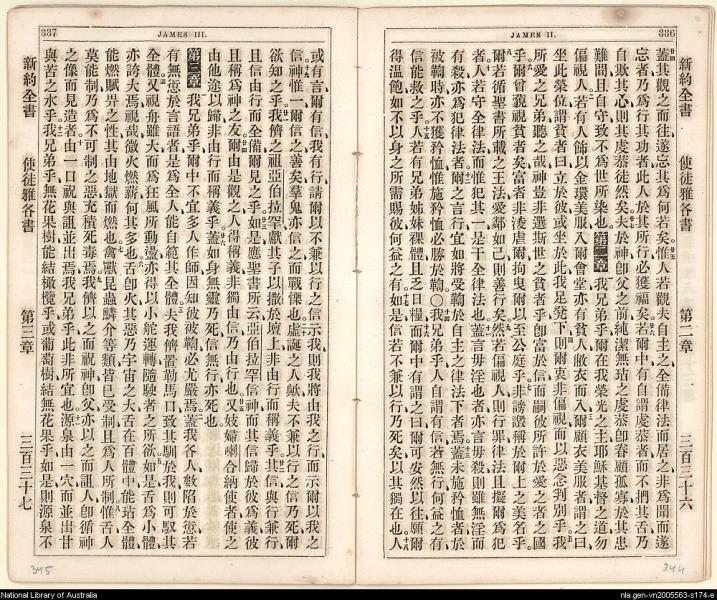 336
JAMES II.
新約全書 使徒雅各書 第二章 三百三十六
蓋其觀之而往遂忘其爲何若矣惟人若觀夫自主之全備律法而居之非爲聞而遂
忘者乃爲行其功者此人於其所行必獲福矣若爾中有自謂虔恭者而不捫其舌乃
自欺其心則其虔恭徒然矣夫於神卽父之前純潔無玷之虔恭卽眷顧孤寡於其患
難間且自守致不爲世所染也第二章我兄弟乎爾在我榮光之主耶穌基督之道勿
偏視人若有人飾以金環美服入爾會堂亦有貧人敝衣而入爾顧衣美服者謂之曰
坐此榮位謂貧者曰立於彼或坐於此我足凳下則爾衷非偏視而以惡念判別乎我
所愛之兄弟聽之哉神豈非選斯世之貧者乎卽富於信而嗣彼所許於愛之者之國
乎爾曾藐視貧者矣富者非淩虐爾拘曳爾以至公庭乎非謗讟稱於爾上之美名乎
爾若循聖書所載之王法愛鄰如己則善行矣然若偏視人則行罪律法且擬爾爲犯
者人若守全律法而惟犯其一是干全律法也蓋言毋淫者亦言毋殺則雖無淫而
有殺亦爲犯律法者爾之言行宜如將受鞫於自主之律法下者焉蓋未施矜恤者於
被鞫時亦不獲矜恤惟施矜恤必勝於鞫〇我兄弟乎人自謂有信若無行何益之有
信能救之乎人若有兄弟姊妹裸體且乏日糧而爾中有謂之曰爾可安然以往願爾
得溫飽如不以身之所需賜彼何益之有如是信若不兼以行乃死矣以其獨在也人
244
337
JAMES III.
或有言爾有信我有行請爾以不兼以行之信示我則我將由我之行而示爾以我之
信神惟一爾信之善矣羣鬼亦信之而戰慄也虛誕之人歟夫不兼以行之信乃死爾
欲知之乎我儕之祖亞伯拉罕獻其子以撒於壇上非由行而稱義乎其信與行兼行
且信由行而全備爾見之乎如是應聖書所云亞伯拉罕信神而其信歸於彼爲義彼
且稱爲神之友爾由是觀之人得稱義非獨由信乃由行也又妓婦喇合納使者使之
由他途以歸非由行而稱義乎蓋如身無靈乃死信無行亦死也
第三章我兄弟乎爾中不宜多人作師因知彼被鞫必尤嚴焉蓋我各人數陷於愆若
有無愆於言語者是爲全人能自範其全體夫我儕置勒馬口致其馴於我則可馭其
全體又視舟雖大而爲狂風所動盪亦得以小舵運轉隨駛者之所欲如是舌爲小體
亦誇大焉視哉微火燃薪何其多也舌卽火其惡乃宇宙之大舌在百體中能玷全體
能燃賦畀之性其由地獄而燃也禽獸昆蟲鱗介等類皆已受制且爲人所制惟舌人
莫能制乃爲不可制之惡充積死毒焉我儕以之而祝神卽父亦以之而詛人卽循神
之像而見造者由一口祝與詛並出焉我兄弟乎此非所宜也源泉由一穴而並出甘
與苦之水乎我兄弟乎無花果樹能結橄欖乎或葡萄樹結無花果乎如是則源泉不
新約全書 使徒雅各書 第三章 三百三十七
345
National Library of Australia
nla.gen-vn2005563-s174-e